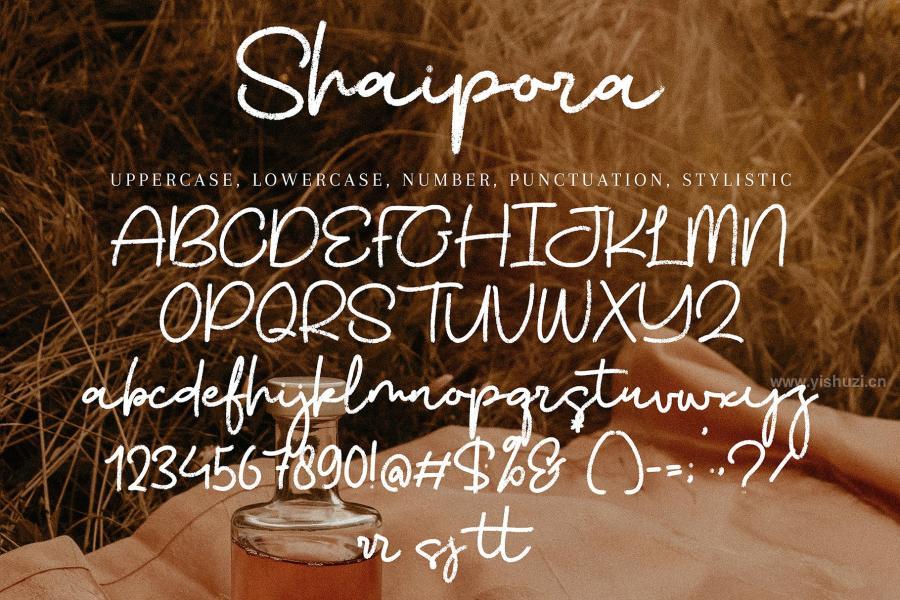 Shaipora
UPPERCASE, LOWERCASE, NUMBER, PUNCTUATION, STYLISTIC
ABCDEFGHIJKLMN
OPQRSTUVWXYZ
www.yishuzi.cn
abcdefhijklmnopqrstuvwxyz
1234567890!@#$%& ()-=;:,.?/
rr sj tt